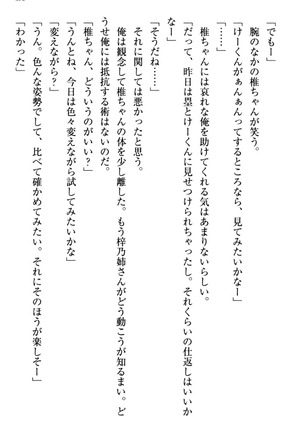 「でもー」
腕のなかの椎ちゃんが笑う。
「けーくんがぁんぁんってするところなら、見てみたいかなー」
「……」
椎ちゃんには哀れな俺を助けてくれる気はあまりないらしい。
「だって、昨日は塁とけーくんに見せつけられちゃったし。それくらいの仕返しはいいか
なー」
「そうだね……」
それに関しては悪かったと思う。
俺は観念して椎ちゃんの体を少し離した。もう梓乃姉さんがどう動こうが知るまい。ど
うせ俺には抵抗する術はないのだ。
「椎ちゃん、どういうのがいい？」
「うんとね、今日は色々変えながら試してみたいかな」
「変えながら？」
「うん。色んな姿勢でして、比べて確かめてみたい。それにそのほうが楽しそー」
「わかった」